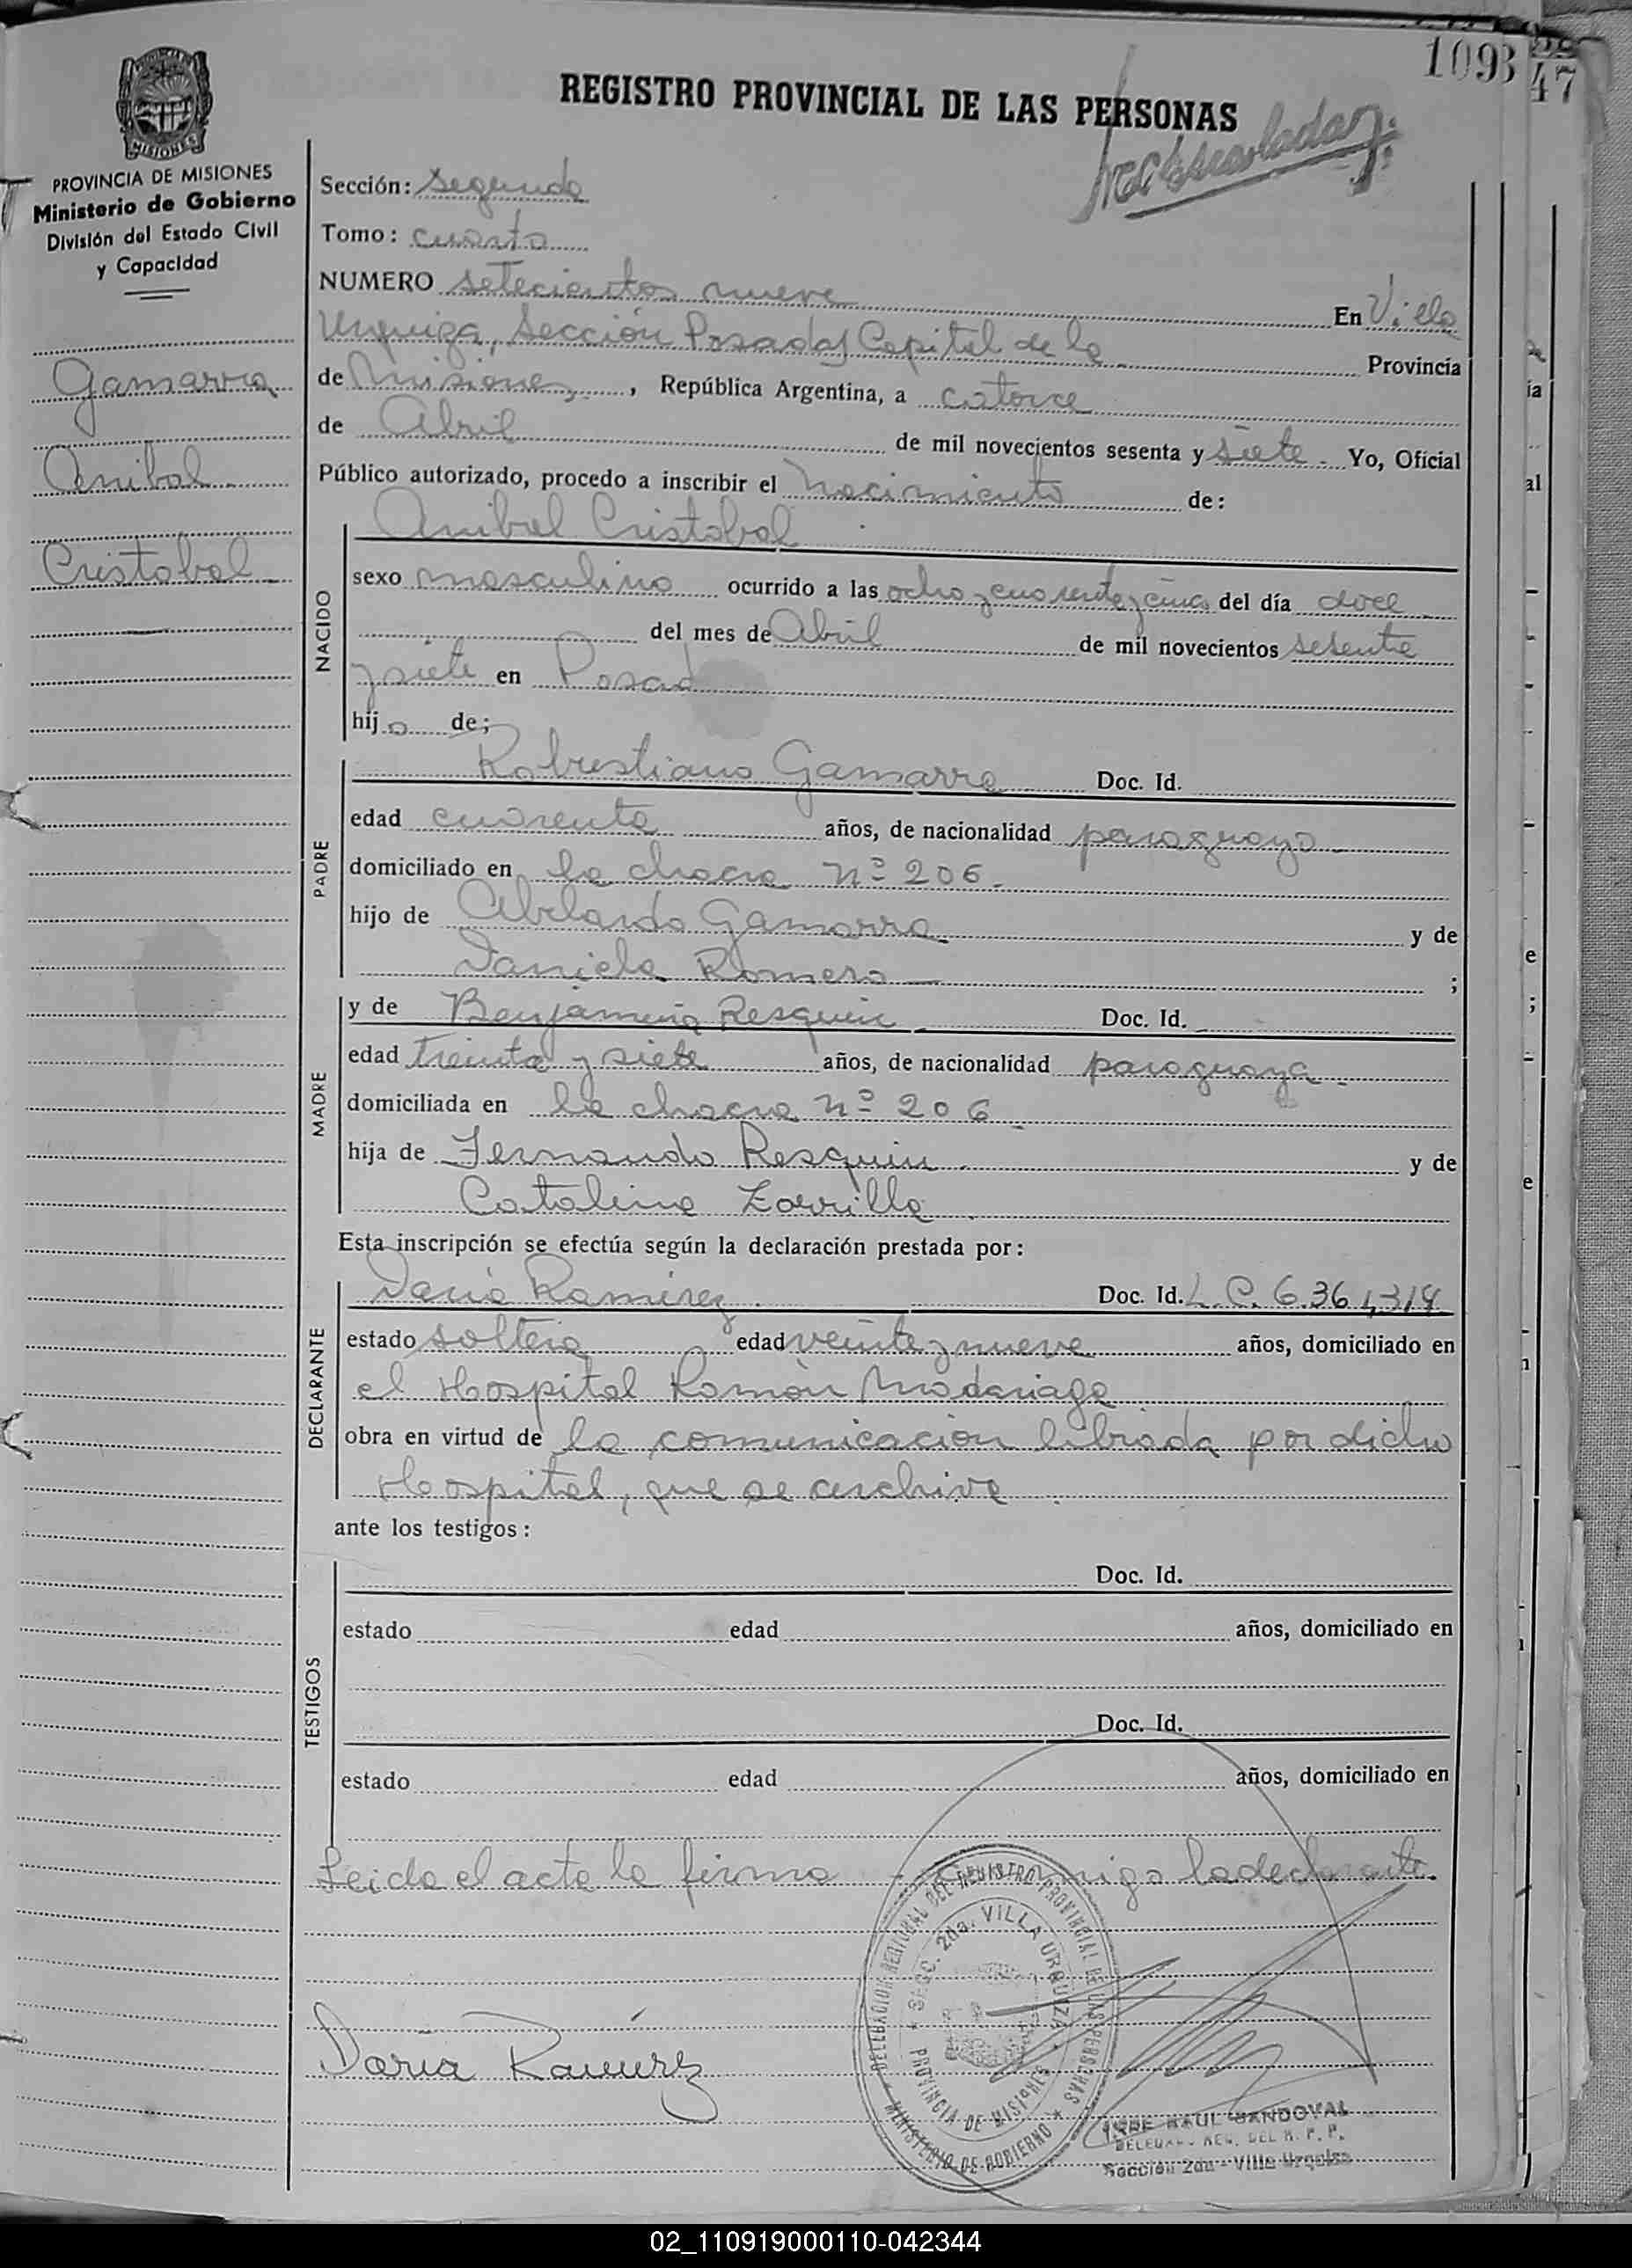 1093
47
REGISTRO PROVINCIAL DE LAS PERSONAS
MISIONES
PROVINCIA DE MISIONES
Ministerio de Gobierno
División del Estado Civil
y Capacidad
Gamarra
Anibal
Cristobal
Sección: Segunda
Tomo: cuarto
NUMERO setecientos nueve
En Villa
Urquiza, Sección Posadas Capital de la Provincia
de Misiones, República Argentina, a catorce
de Abril de mil novecientos sesenta y Siete. Yo, Oficial
Público autorizado, procedo a inscribir el nacimiento de:
NACIDO
Anibal Cristobal
sexo masculino ocurrido a las ocho y cuarenta y cinco del día doce
del mes de Abril de mil novecientos sesenta
y siete en Posad
hijo de;
PADRE
Robustiano Gamarra Doc. Id.
edad cuarenta años, de nacionalidad paraguayo
domiciliado en la chacra nº 206.
hijo de Abelardo Gamarra y de
Daniela Romero ;
MADRE
y de Benjamina Resquin Doc. Id.
edad treinta y siete años, de nacionalidad paraguaya.
domiciliada en la chacra nº 206
hija de Fernando Resquin y de
Catalina Zorrilla
Esta inscripción se efectúa según la declaración prestada por:
DECLARANTE
Daria Ramirez. Doc. Id. L. C. 6.364,318
estado soltera edad veinte y nueve años, domiciliado en
el Hospital Ramón Madariaga
obra en virtud de la comunicación librada por dicho
Hospital, que se archiva.
ante los testigos:
TESTIGOS
Doc. Id.
estado edad años, domiciliado en
Doc. Id.
estado edad años, domiciliado en
Leida el acta la firma conmigo la declarante.
DELEGACION REGIONAL DEL REGISTRO PROVINCIAL DE LAS PERSONAS
SECC. 2da. VILLA URQUIZA
PROVINCIA DE MISIONES
MINISTERIO DE GOBIERNO
Daria Ramirez
RAUL SANDOVAL
DELEGADO REG. DEL R. P. P.
Sección 2da - Villa Urquiza
02_110919000110-042344